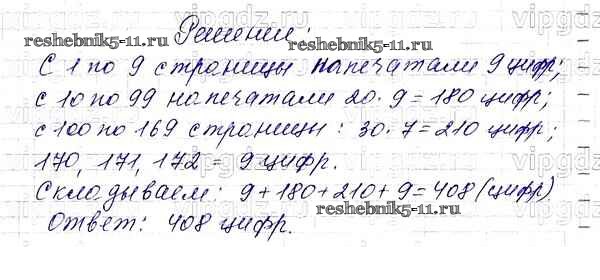 vipgdz.ru
Решение:
reshebnik5-11.ru
reshebnik5-11.ru
С 1 по 9 страницы напечатали 9 цифр;
с 10 по 99 напечатали 20·9=180 цифр;
с 100 по 169 страницы: 30·7=210 цифр;
170, 171, 172 = 9 цифр.
Складываем: 9+180+210+9=408 (цифр)
reshebnik5-11.ru
Ответ: 408 цифр.